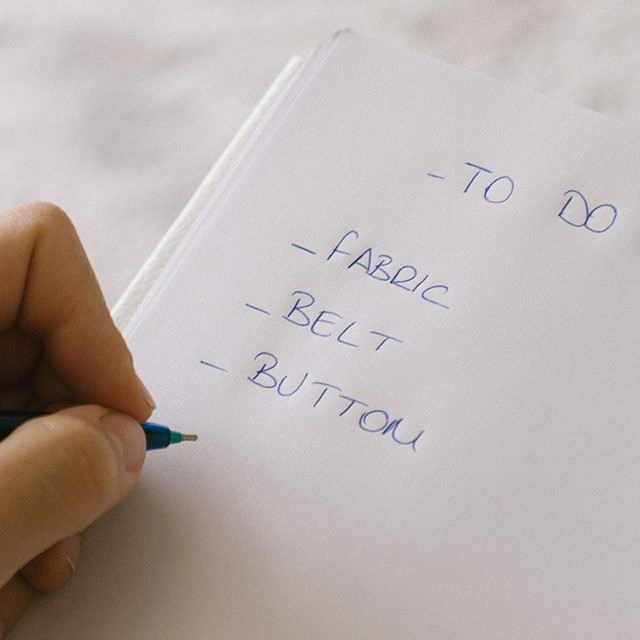 - TO DO
- FABRIC
- BELT
- BUTTON